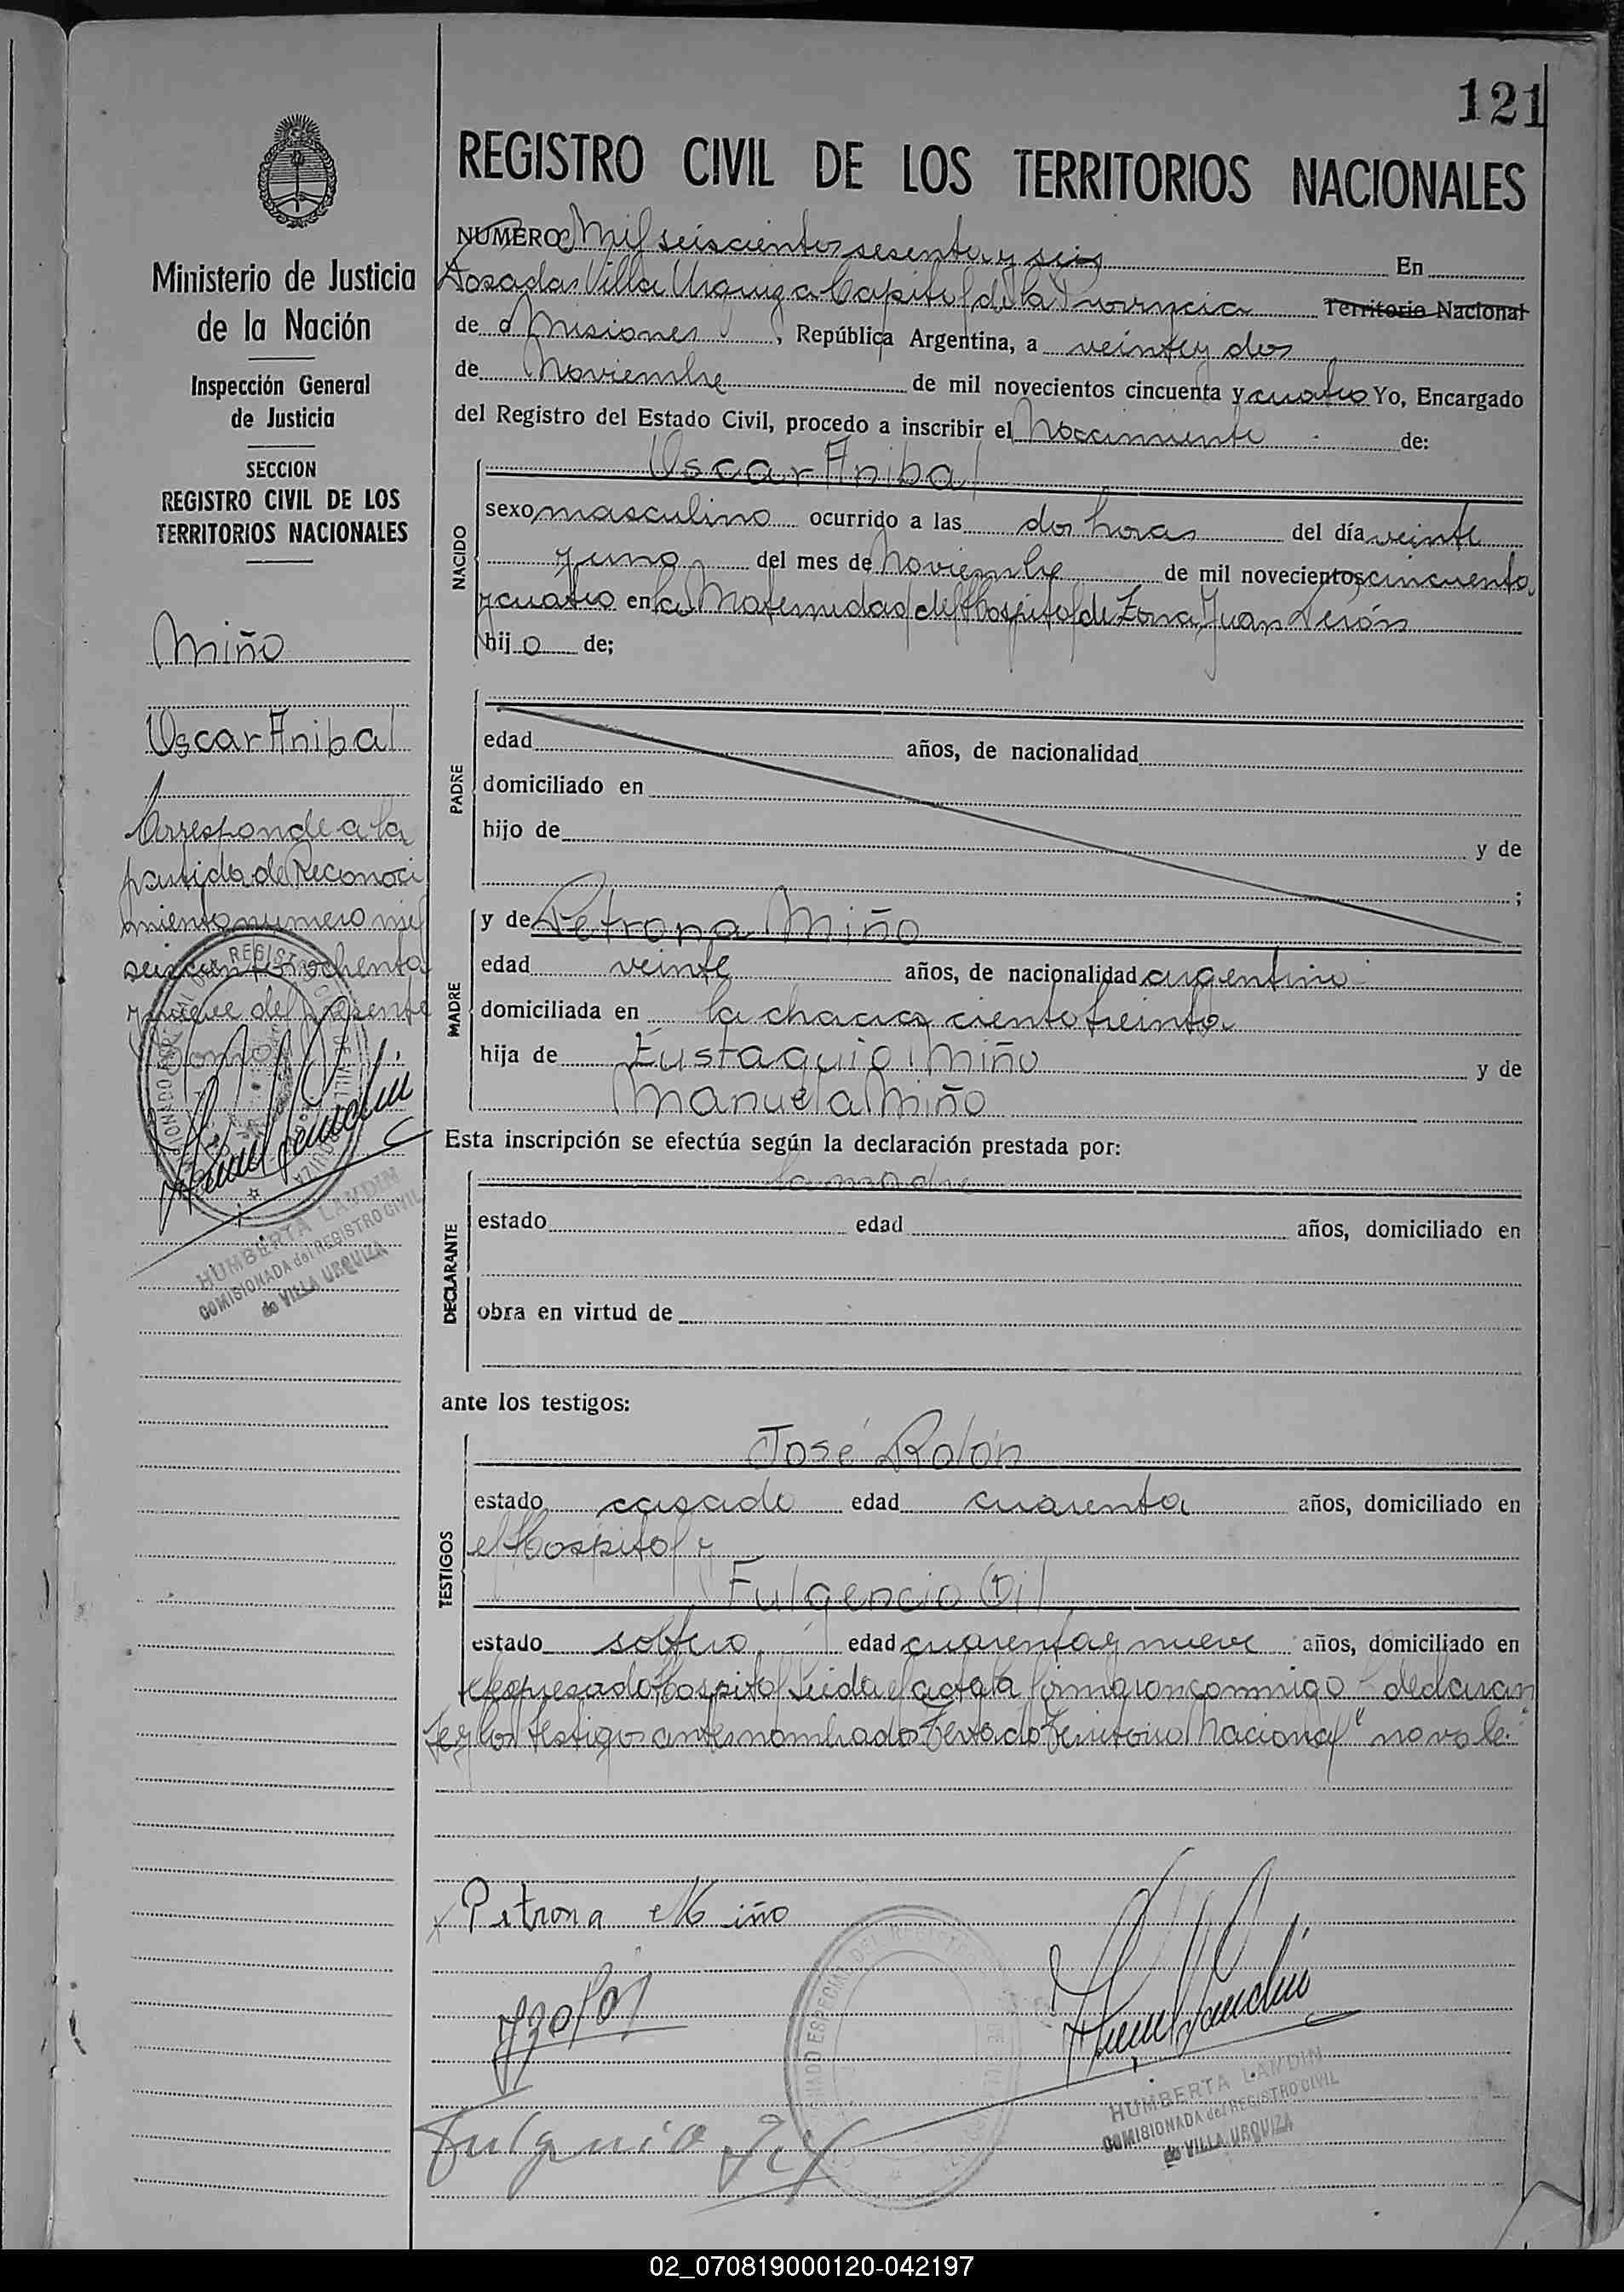 121
REGISTRO CIVIL DE LOS TERRITORIOS NACIONALES
Ministerio de Justicia
de la Nación
Inspección General
de Justicia
SECCION
REGISTRO CIVIL DE LOS
TERRITORIOS NACIONALES
Miño
Oscar Anibal
Corresponde a la
partida de Reconoci
miento numero mil
seiscientos ochenta
y nueve del presente
tomo
HUMBERTA LANDIN
COMISIONADA del REGISTRO CIVIL
de VILLA URQUIZA
NUMERO Mil seiscientos sesenta y seis En
Posadas Villa Urquiza Capital de la Provincia Territorio Nacional
de Misiones, República Argentina, a veinte y dos
de Noviembre de mil novecientos cincuenta y cuatro Yo, Encargado
del Registro del Estado Civil, procedo a inscribir el Nacimiento de:
NACIDO
Oscar Anibal
sexo masculino ocurrido a las dos horas del día veinte
y uno del mes de Noviembre de mil novecientos cincuenta
y cuatro en la Maternidad del Hospital de Zona Juan Perón
hijo de;
PADRE
edad años, de nacionalidad
domiciliado en
hijo de y de
;
MADRE
y de Petrona Miño
edad veinte años, de nacionalidad argentina
domiciliada en la chacra ciento treinta
hija de Eustaquio Miño y de
Manuela Miño
Esta inscripción se efectúa según la declaración prestada por:
DECLARANTE
la madre
estado edad años, domiciliado en
obra en virtud de
ante los testigos:
TESTIGOS
José Rolón
estado casado edad cuarenta años, domiciliado en
el Hospital y
Fulgencio Gil
estado soltero edad cuarenta y nueve años, domiciliado en
el expresado Hospital Leida el acta la firmaron conmigo la declaran
te y los testigos antes nombrados Testado Territorio Nacional "no vale"
Petrona Miño
JRolón
Fulgencio Gil
HUMBERTA LANDIN
COMISIONADA del REGISTRO CIVIL
de VILLA URQUIZA
02_070819000120-042197